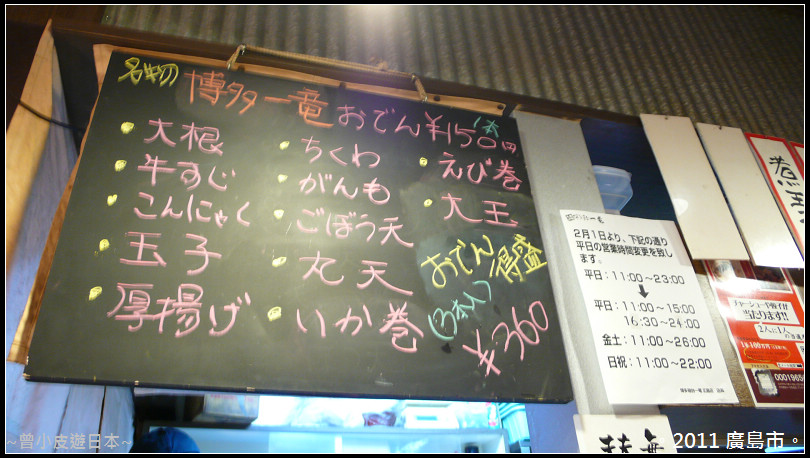 名物 博多一竜 おでん ¥150円 1本
大根
牛すじ
こんにゃく
玉子
厚揚げ
ちくわ
がんも
ごぼう天
丸天
いか巻
えび巻
大王
おでん
得盛
(3本入)
¥360
2月1日より、下記の通り
平日の営業時間変更を致し
ます。
平日：11:00～23:00
平日：11:00～15:00
16:30～24:00
金土：11:00～26:00
日祝：11:00～22:00
当たります!!
2人に1人
~曾小皮遊日本~
2011 廣島市。